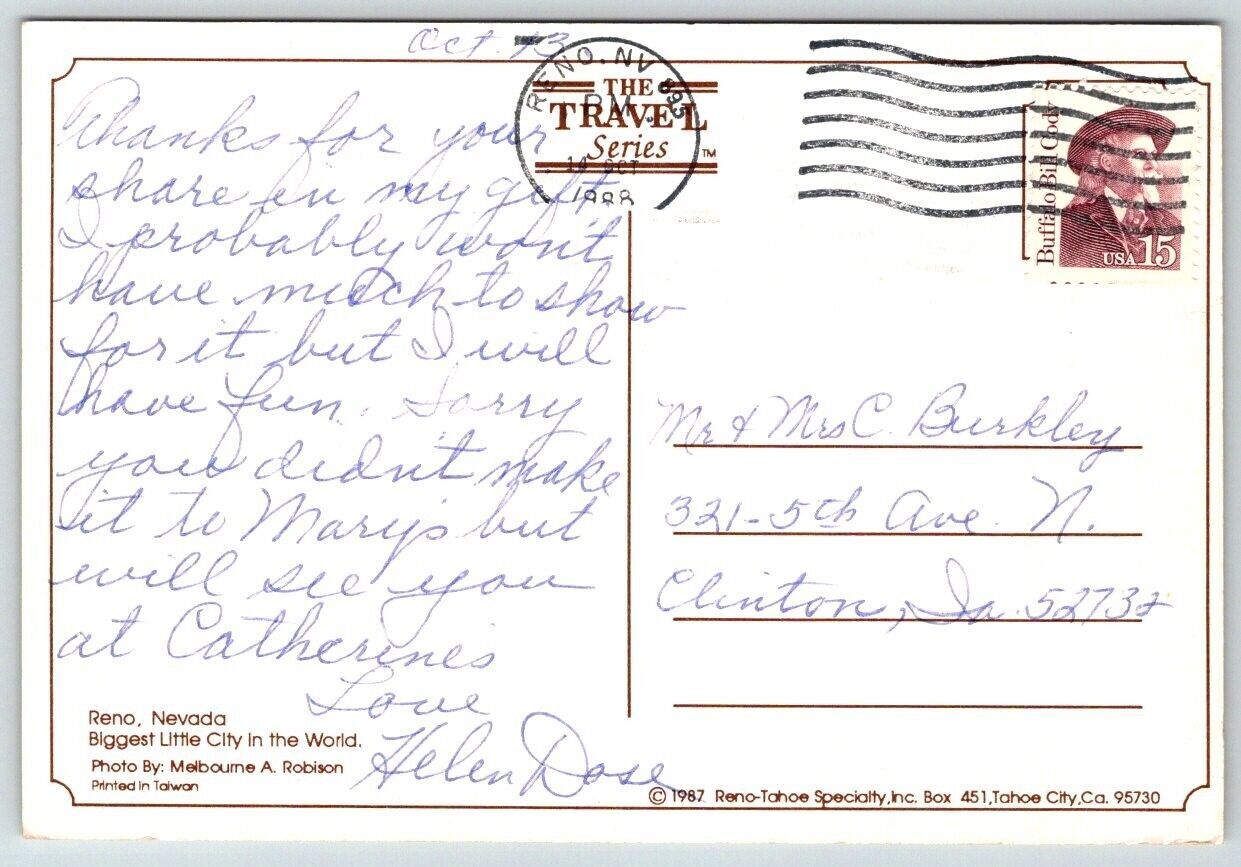 Oct. 13
RENO, NV 895
PM
14 OCT
1988
THE
TRAVEL
Series
TM
Buffalo Bill Cody
USA 15
Thanks for your
share in my gift.
I probably won't
have much to show
for it but I will
have fun. Sorry
you didn't make
it to Mary's but
will see you
at Catherines
Love
Helen Dose
Mr & Mrs C. Burkley
321-5th Ave. N.
Clinton, Ia. 52732
Reno, Nevada
Biggest Little City in the World.
Photo By: Melbourne A. Robison
Printed in Taiwan
© 1987 Reno-Tahoe Specialty, Inc. Box 451, Tahoe City, Ca. 95730